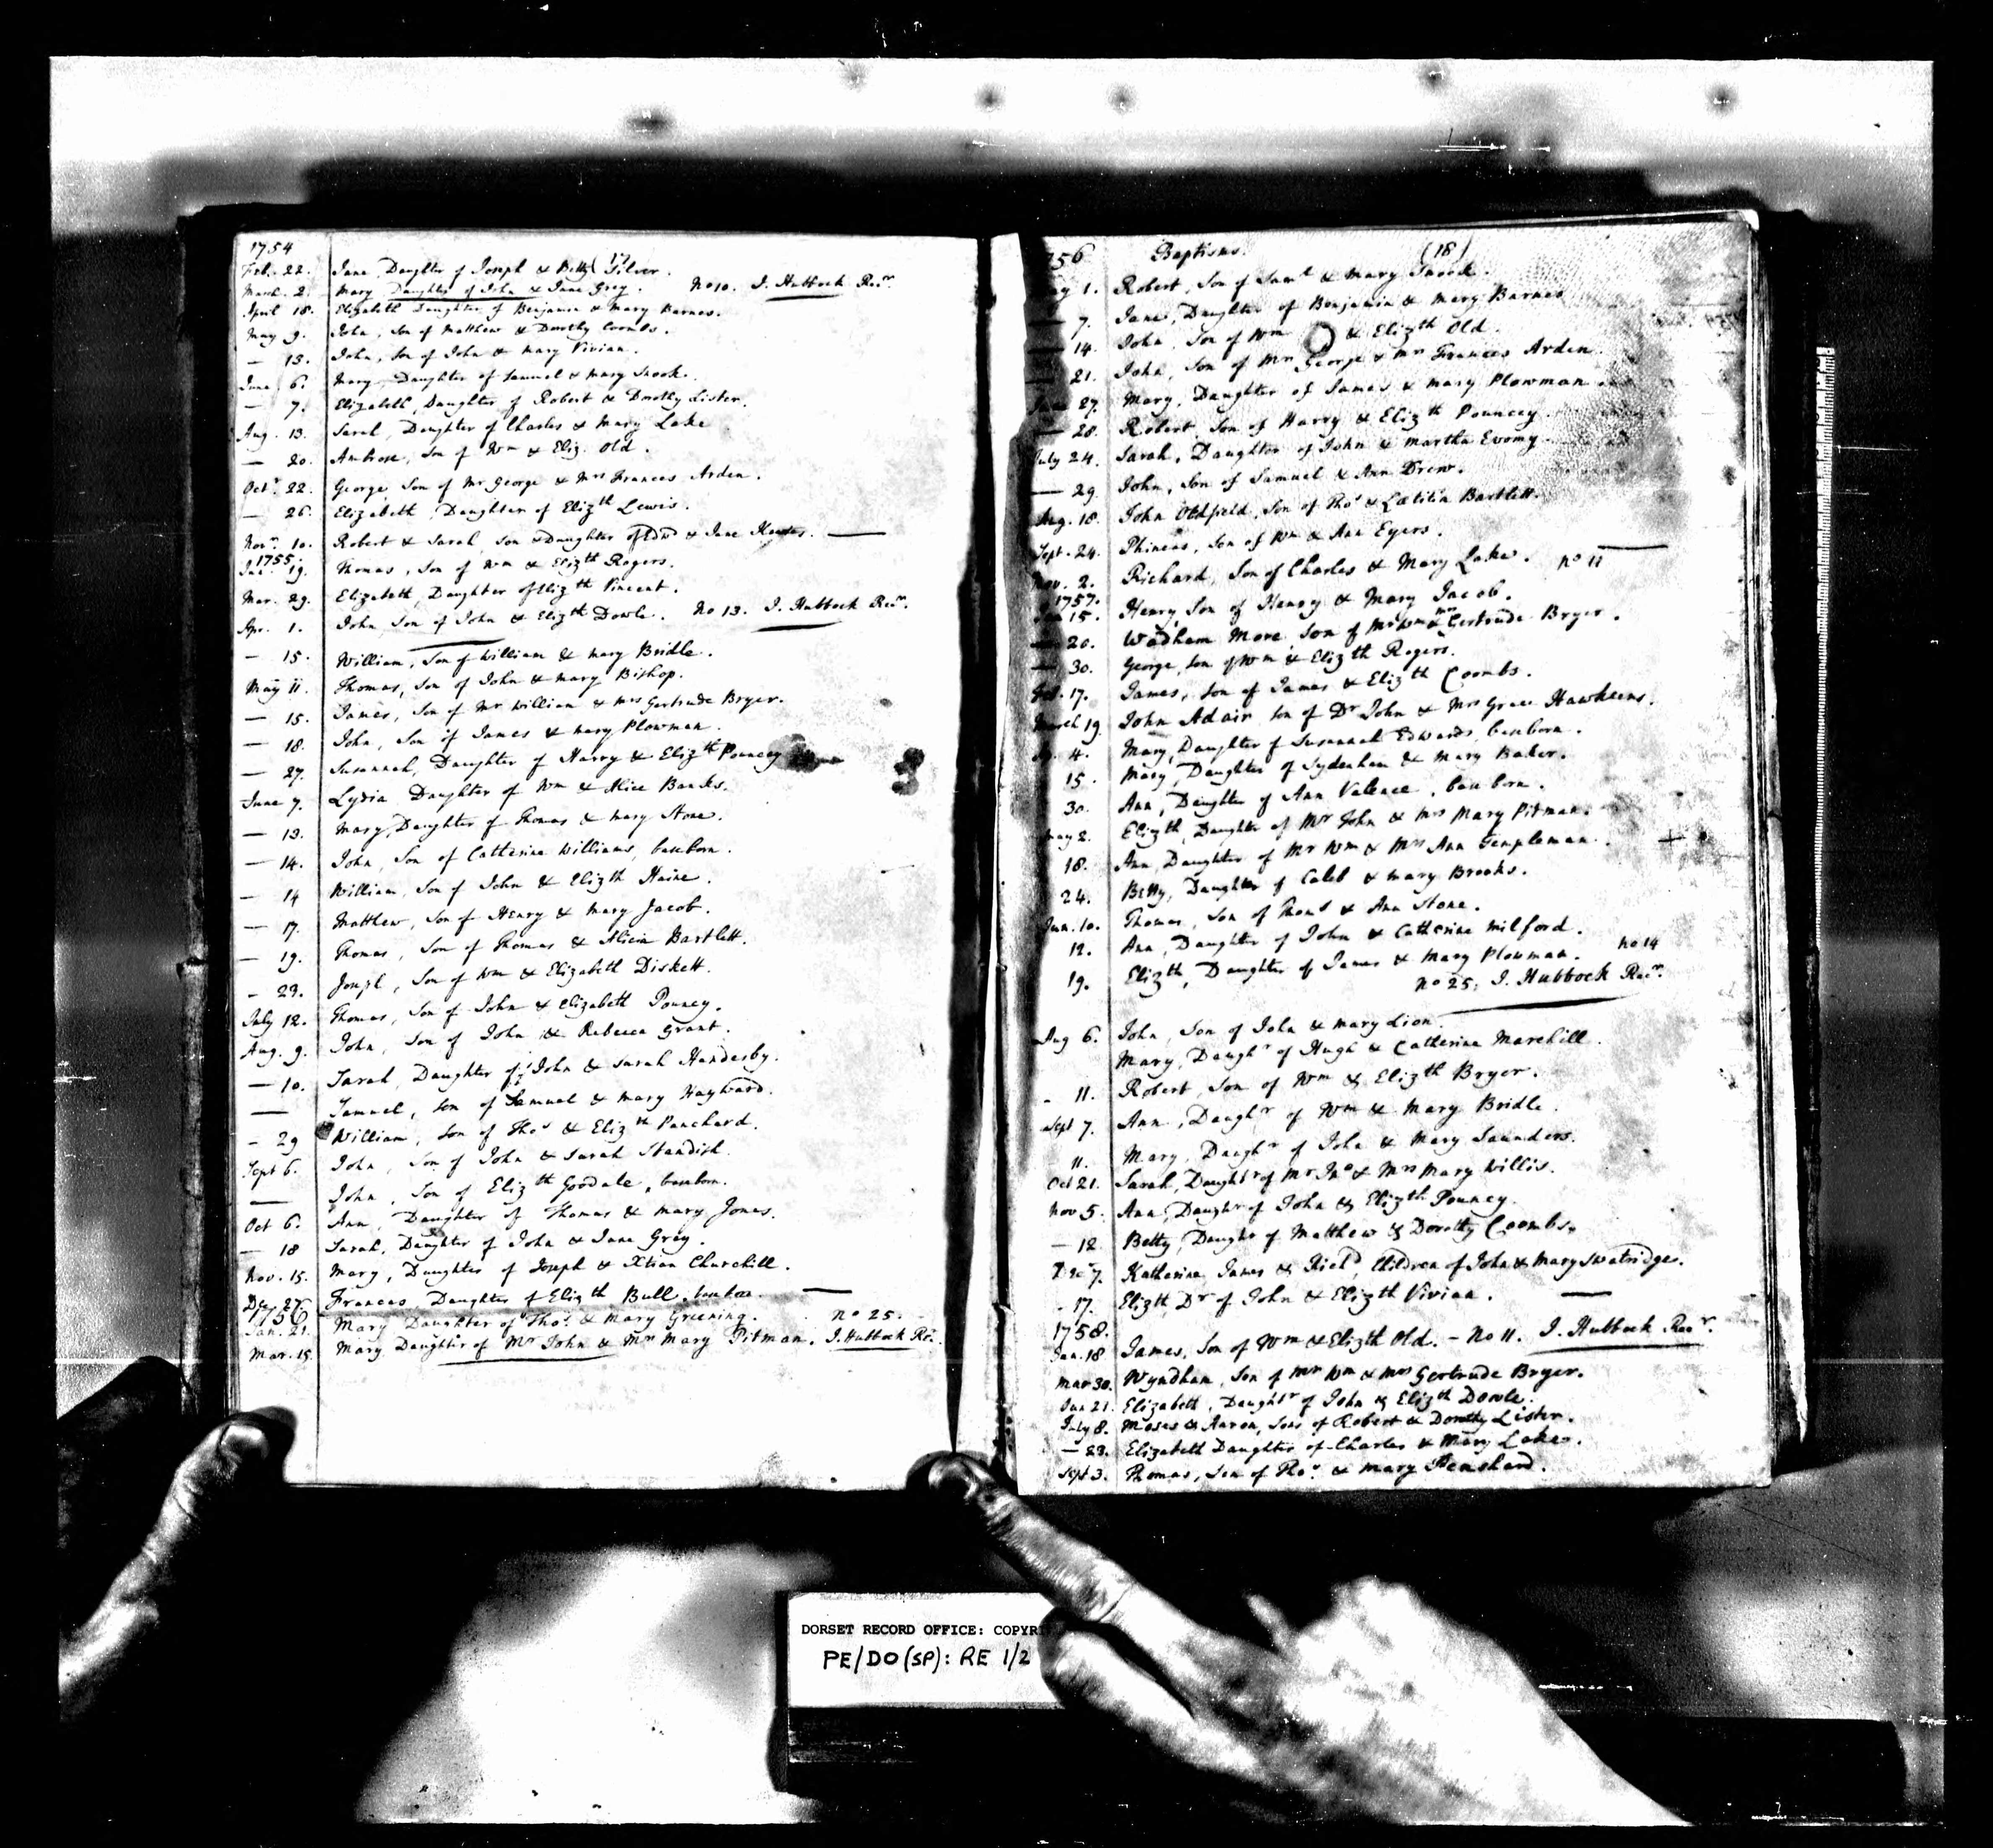 1754
(17)
Feb. 22. Jane Daughter of Joseph & Betty Silver.
March. 2. Mary Daughter of John & Jane Grey. No 10. J. Hubbock Recr.
April 18. Elizabeth Daughter of Benjamin & Mary Barnes.
May 9. John, Son of Matthew & Dorothy Coombs.
— 13. John, Son of John & Mary Vivian.
June, 6. Mary, Daughter of Samuel & Mary Snook.
— 7. Elizabeth, Daughter of Robert & Dorothy Lister.
Aug. 13. Sarah, Daughter of Charles & Mary Lake
— 20. Ambrose, Son of Wm & Eliz. Old.
Octr. 22. George, Son of Mr George & Mrs Frances Arden.
— 26. Elizabeth, Daughter of Elizth Lewis.
Novr. 10. Robert & Sarah, Son & Daughter of Edwd & Jane —
1755.
Jan. 19. Thomas, Son of Wm & Elizth Rogers.
Mar. 29. Elizabeth, Daughter of Elizth Vincent.
Apr. 1. John, Son of John & Elizth Dowle. No 13. J. Hubbock Recr.
— 15. William, Son of William & Mary Bridle.
May 11. Thomas, Son of John & Mary Bishop.
— 15. James, Son of Mr William & Mrs Gertrude Bryer.
— 18. John, Son of James & Mary Plowman.
— 27. Susannah, Daughter of Harry & Elizth Pouncey
June 7. Lydia Daughter of Wm & Alice Banks.
— 13. Mary, Daughter of Thomas & Mary Stone.
— 14. John, Son of Catherine Williams, baseborn.
— 14 William, Son of John & Elizth Haine.
— 17. Matthew, Son of Henry & Mary Jacob.
— 19. Thomas, Son of Thomas & Alicia Bartlett.
— 23. Joseph, Son of Wm & Elizabeth Diskett.
July 12. Thomas, Son of John & Elizabeth Pouncy.
Aug. 9. John, Son of John & Rebecca Grant.
— 10. Sarah, Daughter of John & Sarah Handesby.
— Samuel, Son of Samuel & Mary Hayward.
— 29 William, Son of Thos & Elizth Panchard.
Sept 6. John, Son of John & Sarah Standish.
— John, Son of Elizth Goodale, baseborn.
Oct 6. Ann, Daughter of Thomas & Mary Jones.
— 18 Sarah, Daughter of John & Jane Grey.
Nov. 15. Mary, Daughter of Joseph & Xtian Churchill.
Dec. 27. Frances Daughter of Elizth Bull, —
1756
Jan. 21. Mary Daughter of Thos. & Mary Greening. no 25.
Mar. 15. Mary Daughter of Mr John & Mrs Mary Pitman. J. Hubbock Recr.
1756 Baptisms. (18)
May 1. Robert, Son of Saml & Mary Snook.
— 7. Jane, Daughter of Benjamin & Mary Barnes
— 14. John, Son of Wm & Elizth Old.
— 21. John, Son of Mr George & Mrs Frances Arden.
June 27. Mary, Daughter of James & Mary Plowman
— 28. Robert, Son of Harry & Elizth Pouncey.
July 24. Sarah, Daughter of John & Martha Evomy.
— 29. John, Son of Samuel & Ann Drew.
Aug. 18. John Oldfield, Son of Thos & Lætitia Bartlett.
Sept. 24. Phineas, Son of Wm & Ann Eyers.
Nov. 2. Richard, Son of Charles & Mary Lake. no 11
1757.
Jan 15. Henry, Son of Henry & Mary Jacob.
— 20. Wadham More Son of Mr Wm & Mrs Gertrude Bryer.
— 30. George, Son of Wm & Elizth Rogers.
Feb. 17. James, Son of James & Elizth Coombs.
March 19. John Adair, Son of Dr John & Mrs Grace Hawkins.
Ap. 4. Mary, Daughter of Susannah Edwards, baseborn.
15. Mary, Daughter of Sydenham & Mary Baker.
30. Ann, Daughter of Ann Valence, baseborn.
May 2. Elizth, Daughter of Mr John & Mrs Mary Pitman.
18. Ann, Daughter of Mr Wm & Mrs Ann Templeman.
24. Betty, Daughter of Caleb & Mary Brooks.
Jun. 10. Thomas, Son of Thoms & Ann Stone.
12. Ann, Daughter of John & Catherine Milford.
19. Elizth, Daughter of James & Mary Plowman. no 14
no 25. J. Hubbock Recr.
Aug 6. John, Son of John & Mary Lion.
Mary, Daughr of Hugh & Catherine Marshill.
- 11. Robert, Son of Wm & Elizth Bryer.
Sept 7. Ann, Daughr of Wm & Mary Bridle.
11. Mary, Daughr of John & Mary Saunders.
Oct 21. Sarah, Daughtr of Mr Jno & Mrs Mary Willis.
Nov 5. Ann, Daughr of John & Elizth Pouncy.
— 12 Betty, Daughr of Matthew & Dorothy Coombs.
Dec 7. Katherine, James & Richd, Children of John & Mary Swatridge.
- 17. Elizth Dr of John & Elizth Vivian. —
1758.
Jan. 18 James, Son of Wm & Elizth Old. - No 11. J. Hubbock Recr.
Mar 30. Wyndham, Son of Mr Wm & Mrs Gertrude Bryer.
Jun 21. Elizabeth, Daughtr of John & Elizth Dowle.
July 8. Moses & Aaron, Sons of Robert & Dorothy Lister.
— 23. Elizabeth Daughter of Charles & Mary Lake.
Sept 3. Thomas, Son of Thos. & Mary Penshard.
DORSET RECORD OFFICE: COPYRI
PE/DO(SP): RE 1/2